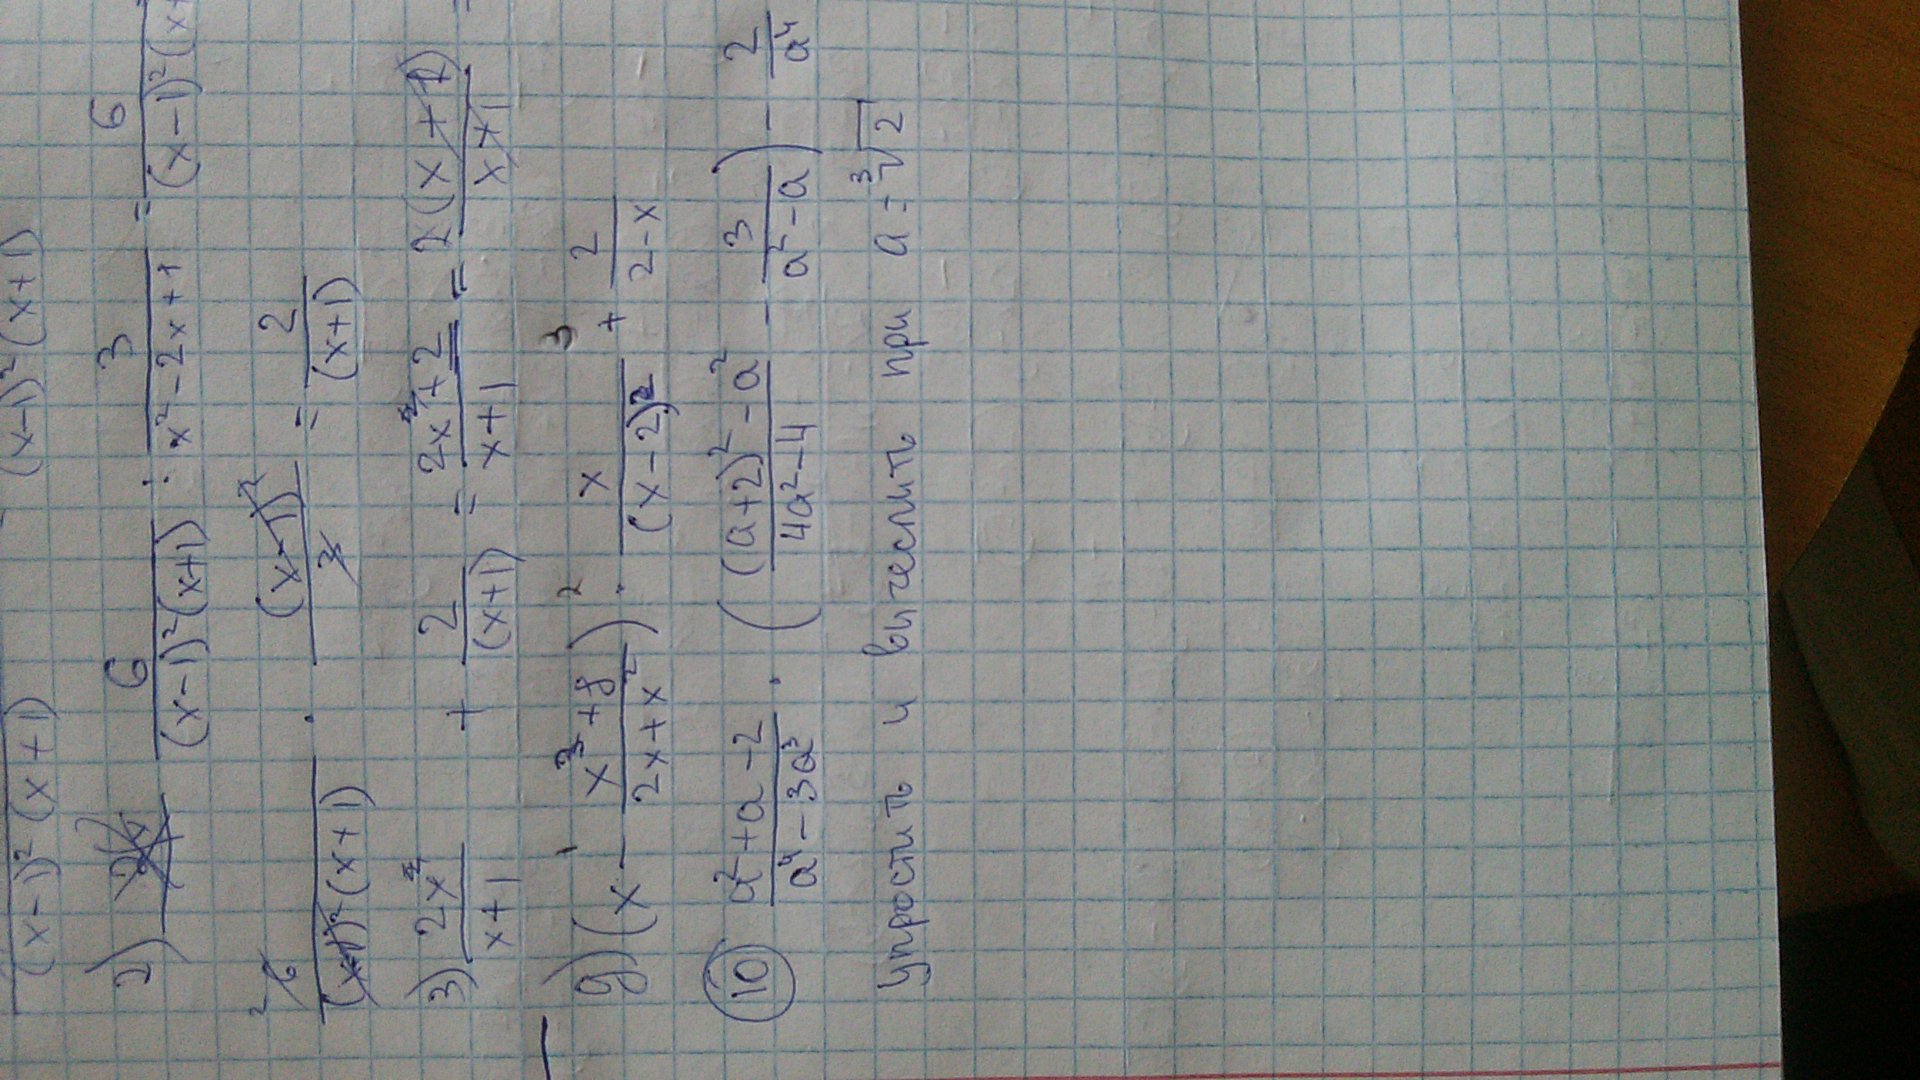 (x-1)²(x+1) (x-1)²(x+1)
2) 6/((x-1)²(x+1)) : 3/(x²-2x+1) = 6/((x-1)²(x
6/((x-1)²(x+1)) · (x-1)²/3 = 2/(x+1)
3) 2x/(x+1) + 2/(x+1) = (2x+2)/(x+1) = 2(x+1)/(x+1) =
g) (x - (x³+8)/(2x+x²)) · x/(x-2)² + 2/(2-x)
1 2 3
10 (a²+a-2)/(a⁴-3a³) · (((a+2)²-a²)/(4a²-4) - 3/(a²-a)) - 2/a⁴
упростить и вычеслить при a=³√2